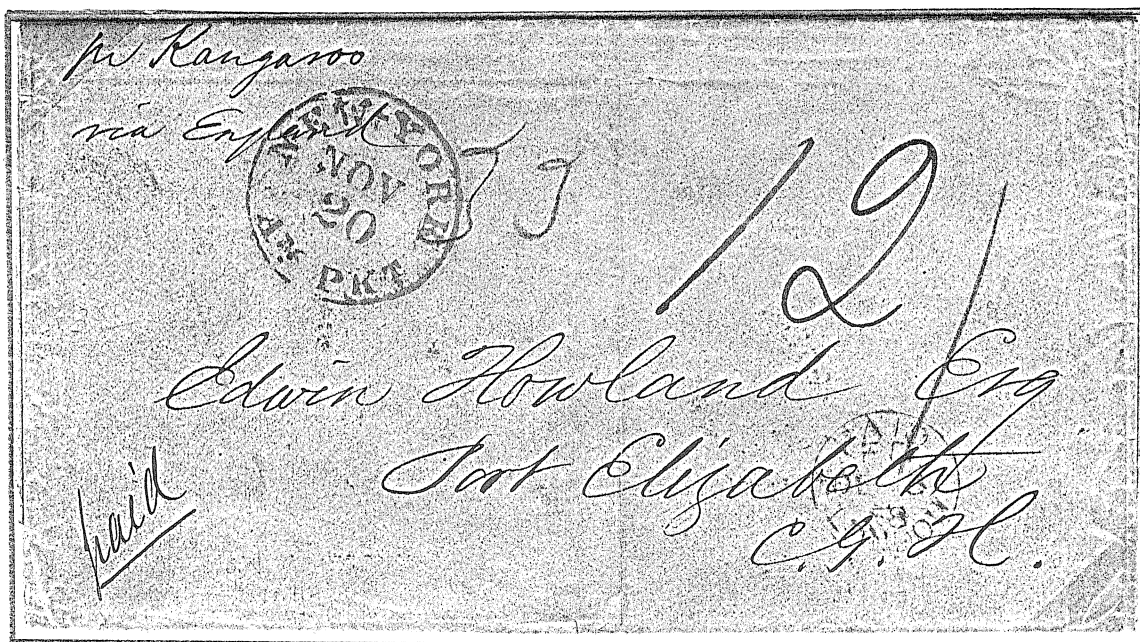 pr Kangaroo
via England
NEW-YORK
NOV
20
AM PKT
33
12
1
Edwin Howland Esq
Port Elizabeth
C.G.H.
paid